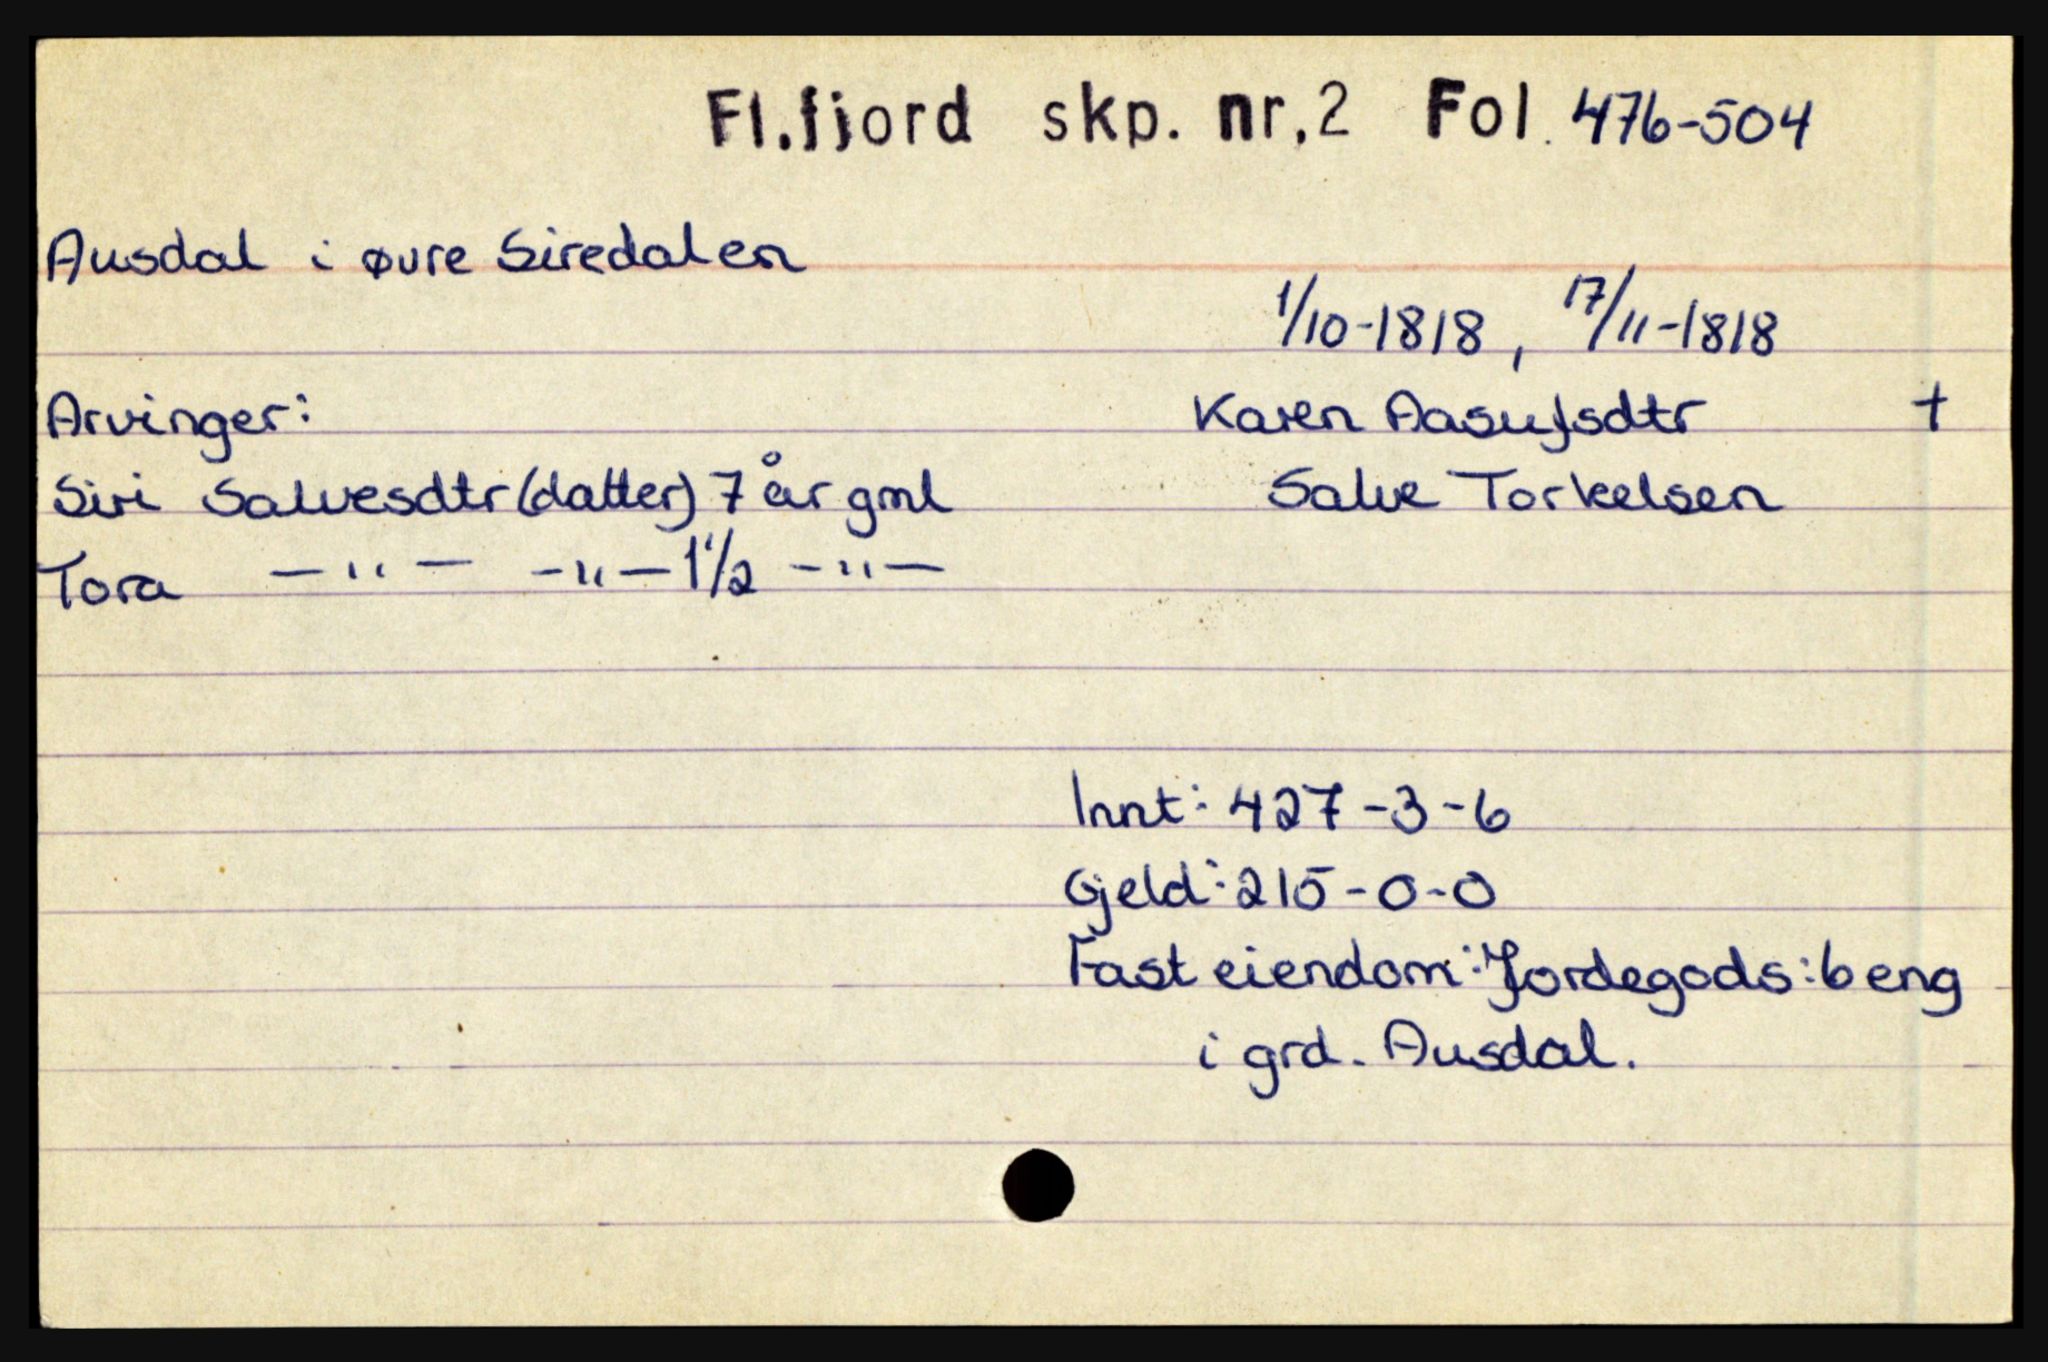 Fl.fjord skp. nr.2 Fol. 476-504
Ausdal i øvre Siredalen
1/10-1818, 17/11-1818
Arvinger: Karen Aasufsdtr +
Siri Salvesdtr (datter) 7 år gml Salve Torkelsen
Tora —"— —"— 1 1/2 —"—
Innt: 427-3-6
Gjeld: 215-0-0
Fast eiendom: Jordegods: 6 eng
i grd. Ausdal.